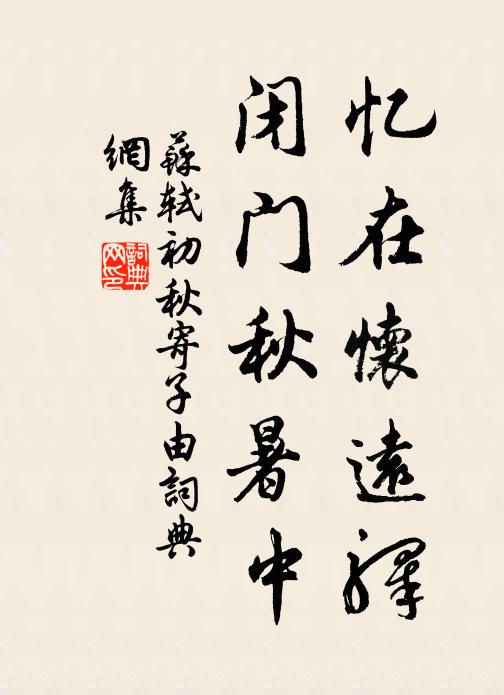 忆在懷遠驛
闭门秋暑中
蘇轼初秋寄子由詞典
網集
詞典
网印